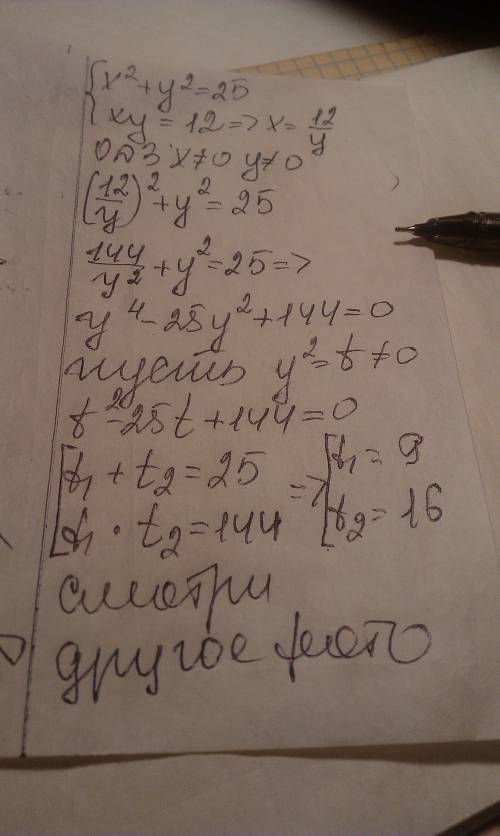 x² + y² = 25
xy = 12 => x = 12/y
ОДЗ x≠0 y≠0
(12/y)² + y² = 25
144/y² + y² = 25 =>
y⁴ - 25y² + 144 = 0
пусть y² = t ≠ 0
t² - 25t + 144 = 0
t₁ + t₂ = 25 => t₁ = 9
t₁ · t₂ = 144 t₂ = 16
смотри
другое фото